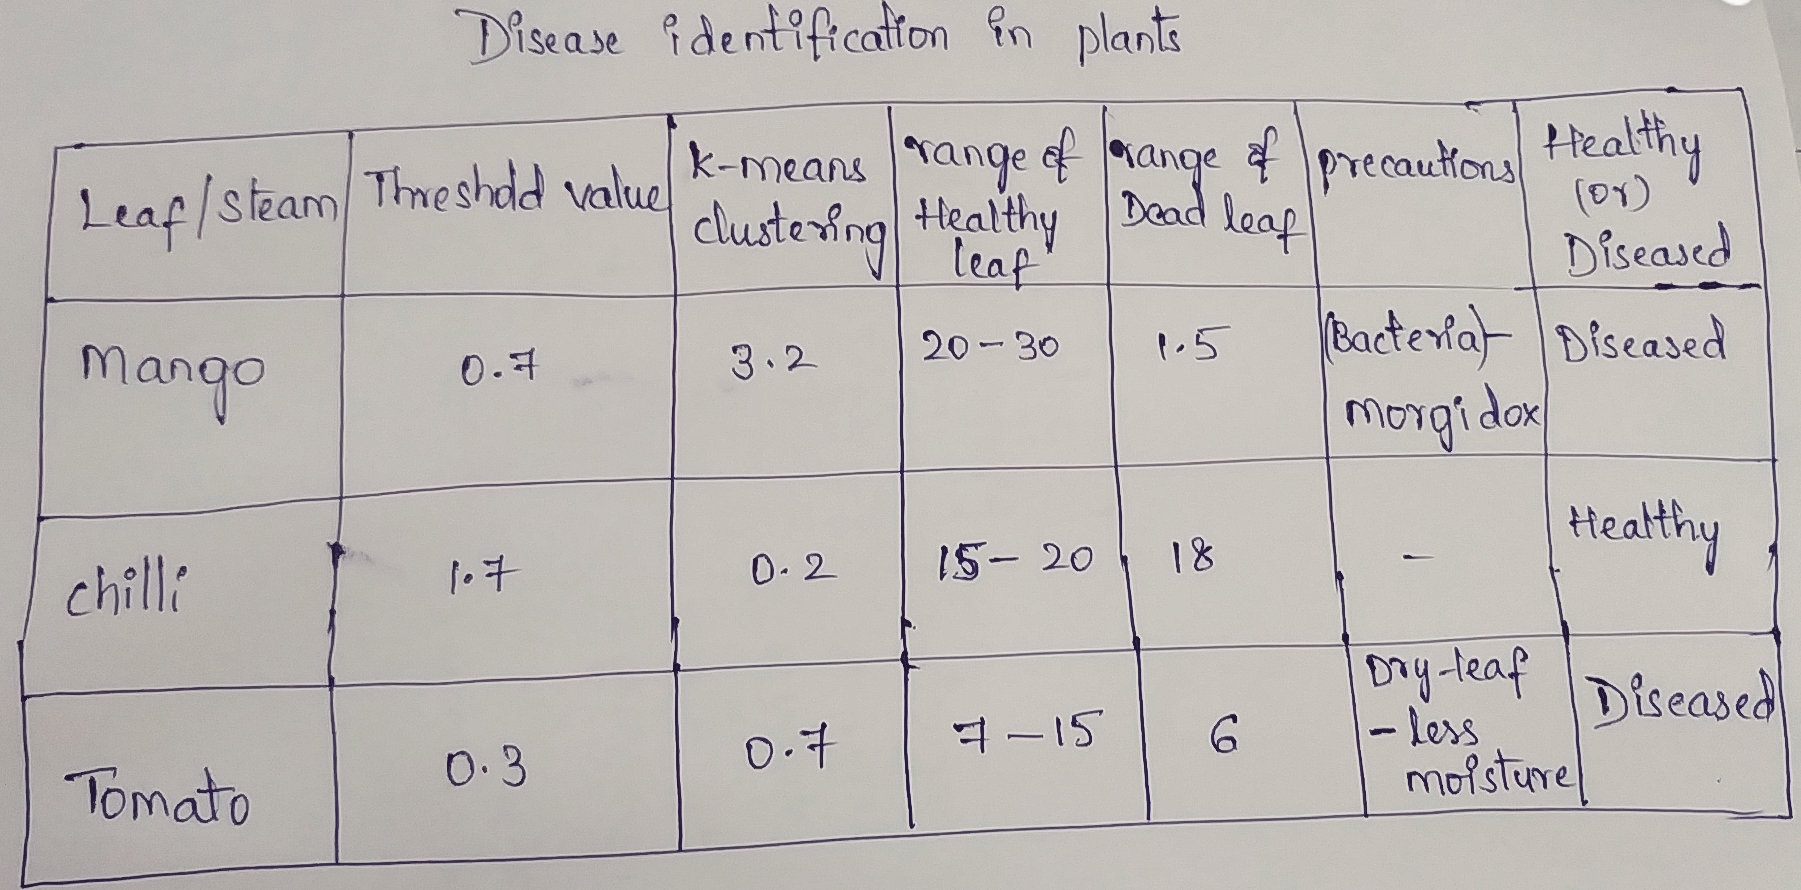 Disease identification in plants
Leaf/Steam
Threshold value
k-means
clustering
range of
Healthy
leaf
range of
Dead leaf
precautions
Healthy
(or)
Diseased
Mango
0.7
3.2
20-30
1.5
(Bacteria)-
morgidox
Diseased
chilli
1.7
0.2
15-20
18
-
Healthy
Tomato
0.3
0.7
7-15
6
Dry-leaf
- less
moisture
Diseased